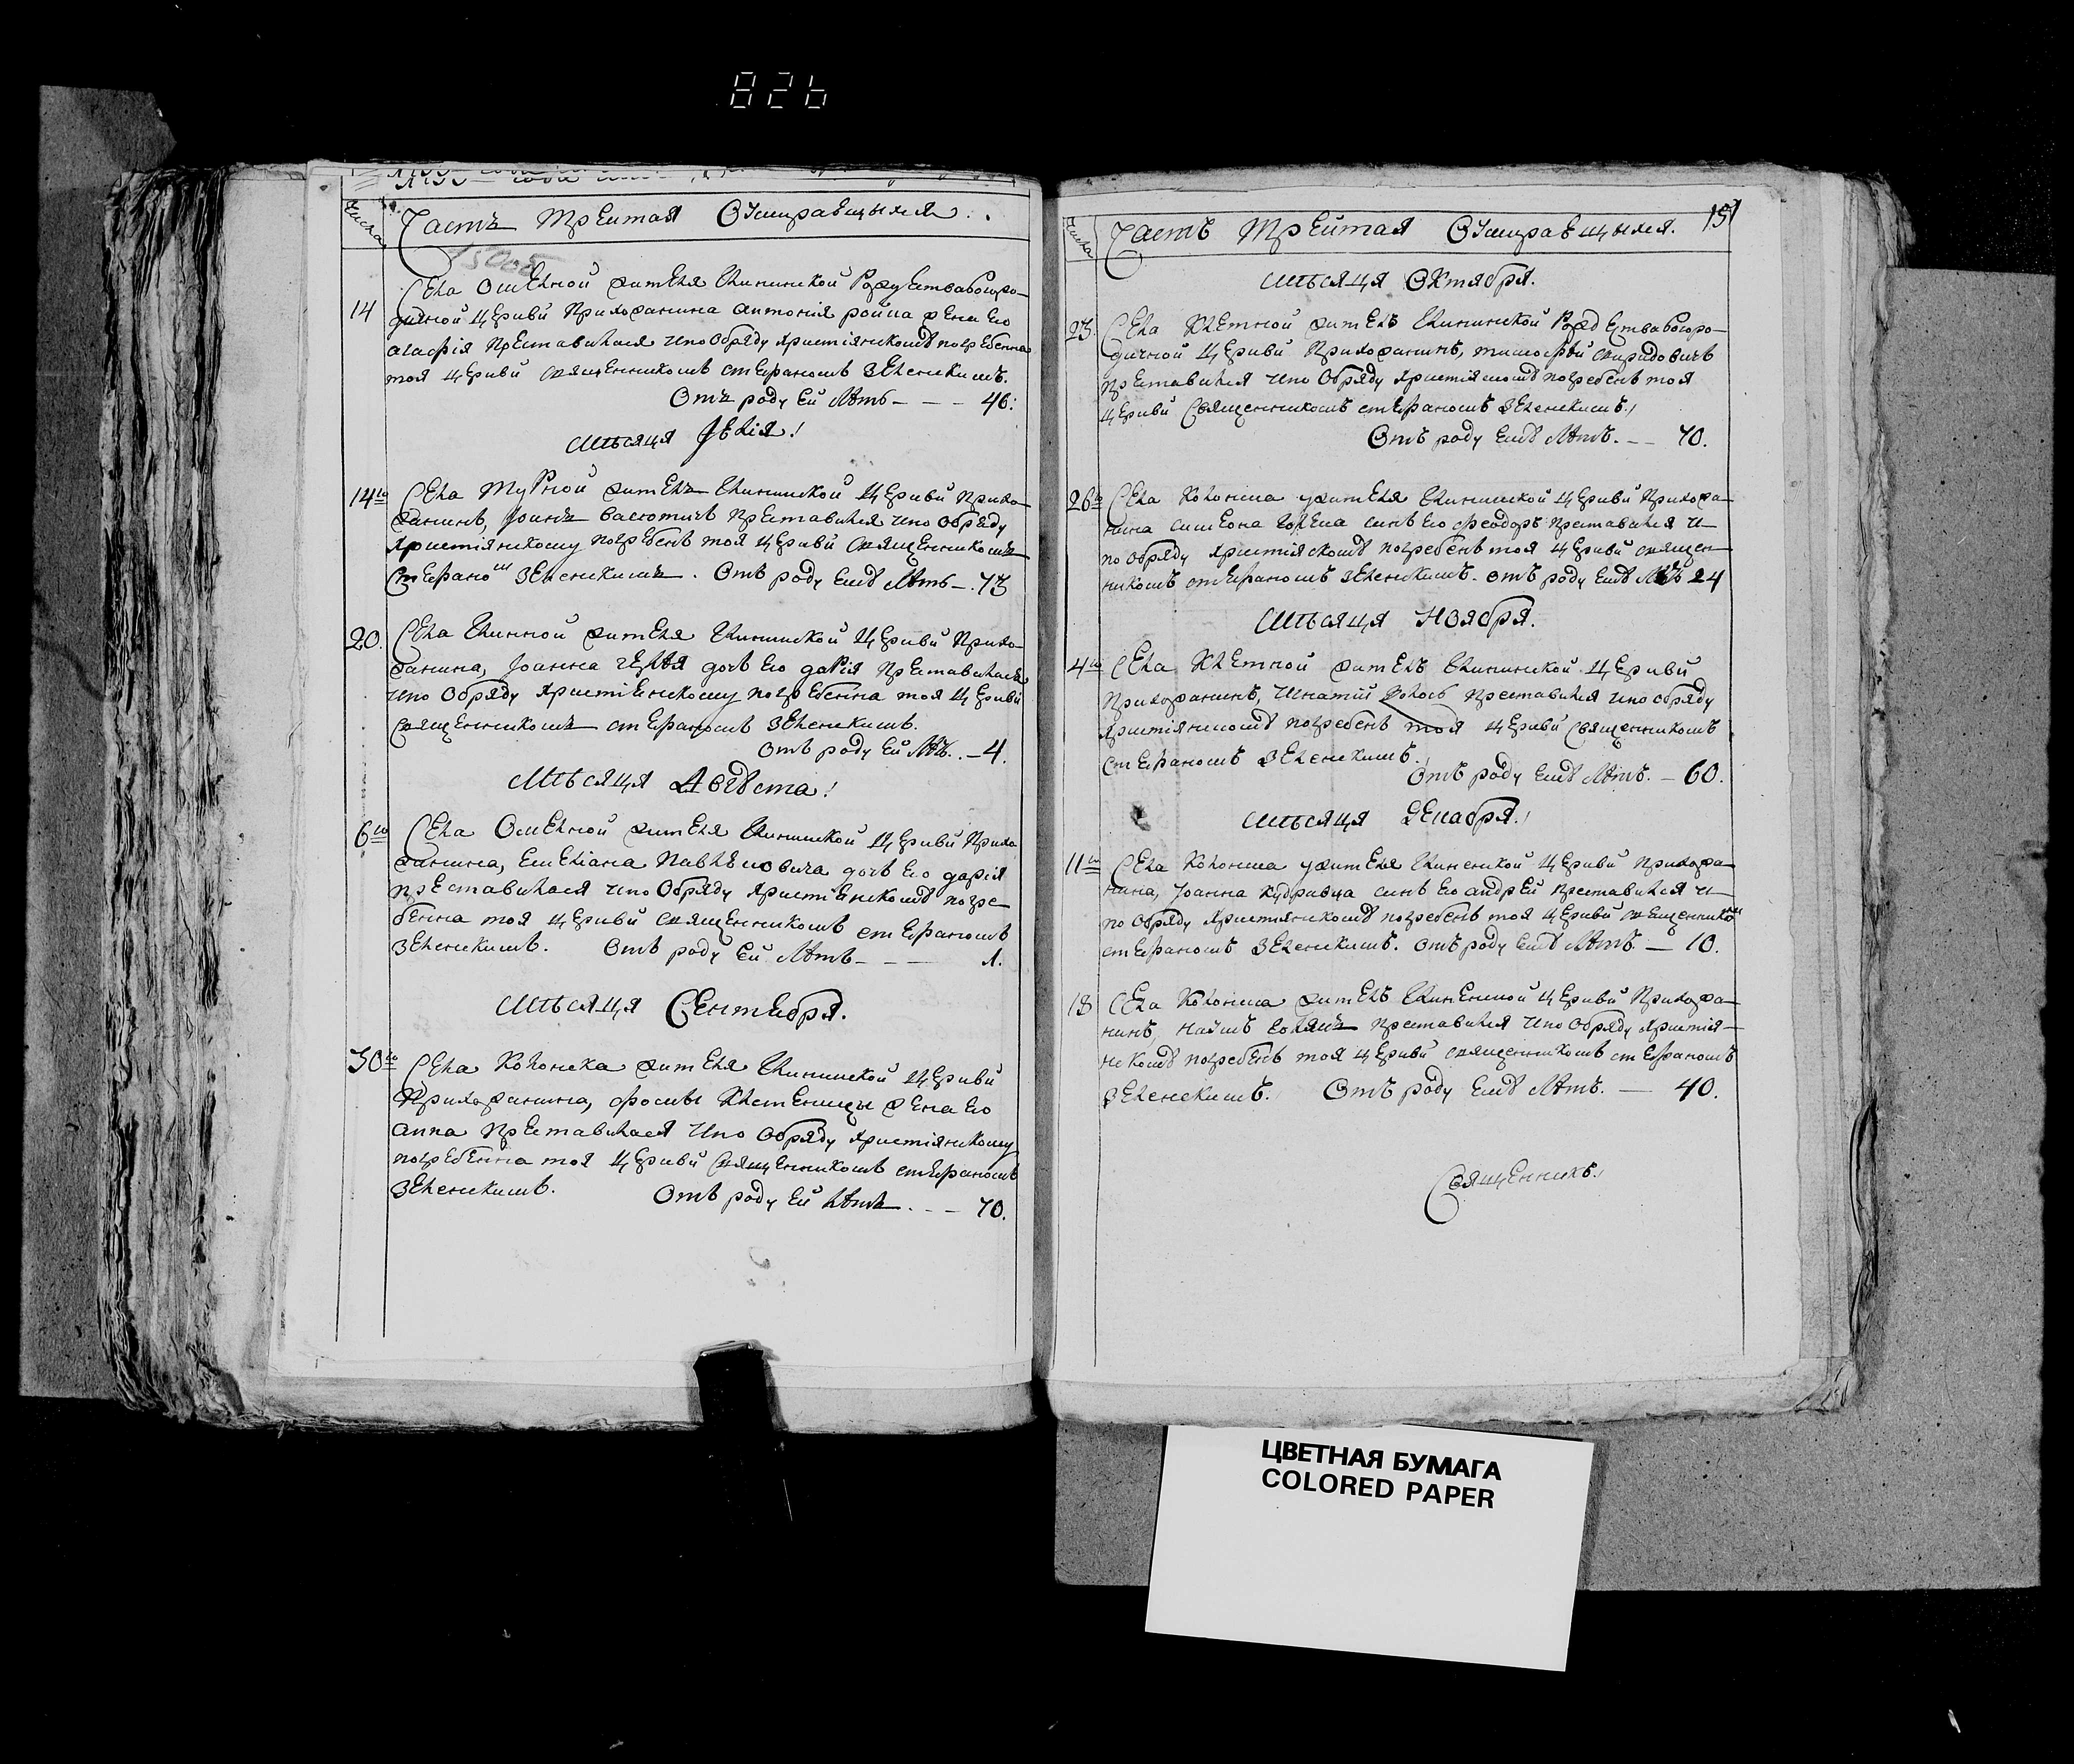 826
Числа
Часть Третая О Умиравщыхся.
14
Села Омелной жителя Глининской Рождества Богоро-
дичной Церкви Прихожанина Антонія ройпа жена Его
агафія Преставилася ипо Обряду Христіянскомꙋ погребенна
тоя Церкви священникомъ стефаномъ Зеленскимъ.
Отъ роду Ей Лѣтъ — — — 46:
Мѣсяця Іюлія!
14го Села Турной житель Глининской Церкви Прихо-
жанинъ, Іоаннъ Преставился ипо Обряду
Христіянскому погребенъ тоя Церкви священникомъ
Стефаном Зеленскимъ. Отъ роду Емꙋ Лѣтъ —. 73
20. Села Глинной жителя Глининской Церкви Прихо-
жанина, Іоанна дочь Его дарія Преставилася
ипо Обряду Христіенскому погребенна тоя Церкви
священникомъ стефаномъ Зеленскимъ.
Отъ роду Ей Лѣтъ. — 4.
Мѣсяця Августа!
6го Села Омелной жителя Глининской Церкви Прихо
жанина, Емеліана Павленовича дочь Его дарія
Преставилася ипо Обряду Христіенскомꙋ погре-
бенна тоя Церкви священникомъ стефаномъ
Зеленскимъ. Отъ роду Ей Лѣтъ — — — 1.
Мѣсяця Сентебря.
30го Села Колонска жителя Глининской Церкви
Прихожанина, фомы жена Его
Анна Преставилася ипо Обряду Христіянскому
погребенна тоя Церкви священникомъ стефаномъ
Зеленскимъ. Отъ роду Ей Лѣтъ. — — 70.
Числа
Часть Третая О Умиравщыхся. 151
Мѣсяця Октября.
23. Села Клетной житель Глининской Рождества Богоро-
дичной Церкви Прихожанинъ, тимофей спиридовичъ
Преставился ипо Обряду Христіянскомꙋ погребенъ тоя
Церкви Священникомъ стефаномъ Зеленскимъ,
Отъ роду Емꙋ Лѣтъ. — 70.
26го Села Колонска жителя Глининской Церкви Прихожа-
нина симеона синъ Его феодоръ Преставился и-
по Обряду Христіянскомꙋ погребенъ тоя Церкви священ
никомъ стефаномъ Зеленскимъ. Отъ роду Емꙋ Лѣтъ 24
Мѣсяця Ноября.
4го Села Клетной житель Глининской Церкви
Прихожанинъ, Игнатій Преставился ипо обряду
Христіянскомꙋ погребенъ тоя Церкви Священникомъ
стефаномъ Зеленскимъ.
Отъ роду Емꙋ Лѣтъ. — 60.
Мѣсяця Декабря!
11го Села Колонска жителя Глиненской Церкви Прихожа-
нина, Іоанна кꙋдрявца синъ Его андрей Преставился и-
по Обряду Христіянскомꙋ погребенъ тоя Церкви священником
стефаномъ Зеленскимъ. Отъ роду Емꙋ Лѣтъ — 10.
18 Села Колонска житель Глиненской Церкви Прихожа-
нинъ, Преставился ипо Обряду Христія-
нскомꙋ погребенъ тоя Церкви священникомъ стефаномъ
Зеленскимъ. Отъ роду Емꙋ Лѣтъ. — 40.
Священникъ!
ЦВЕТНАЯ БУМАГА
COLORED PAPER